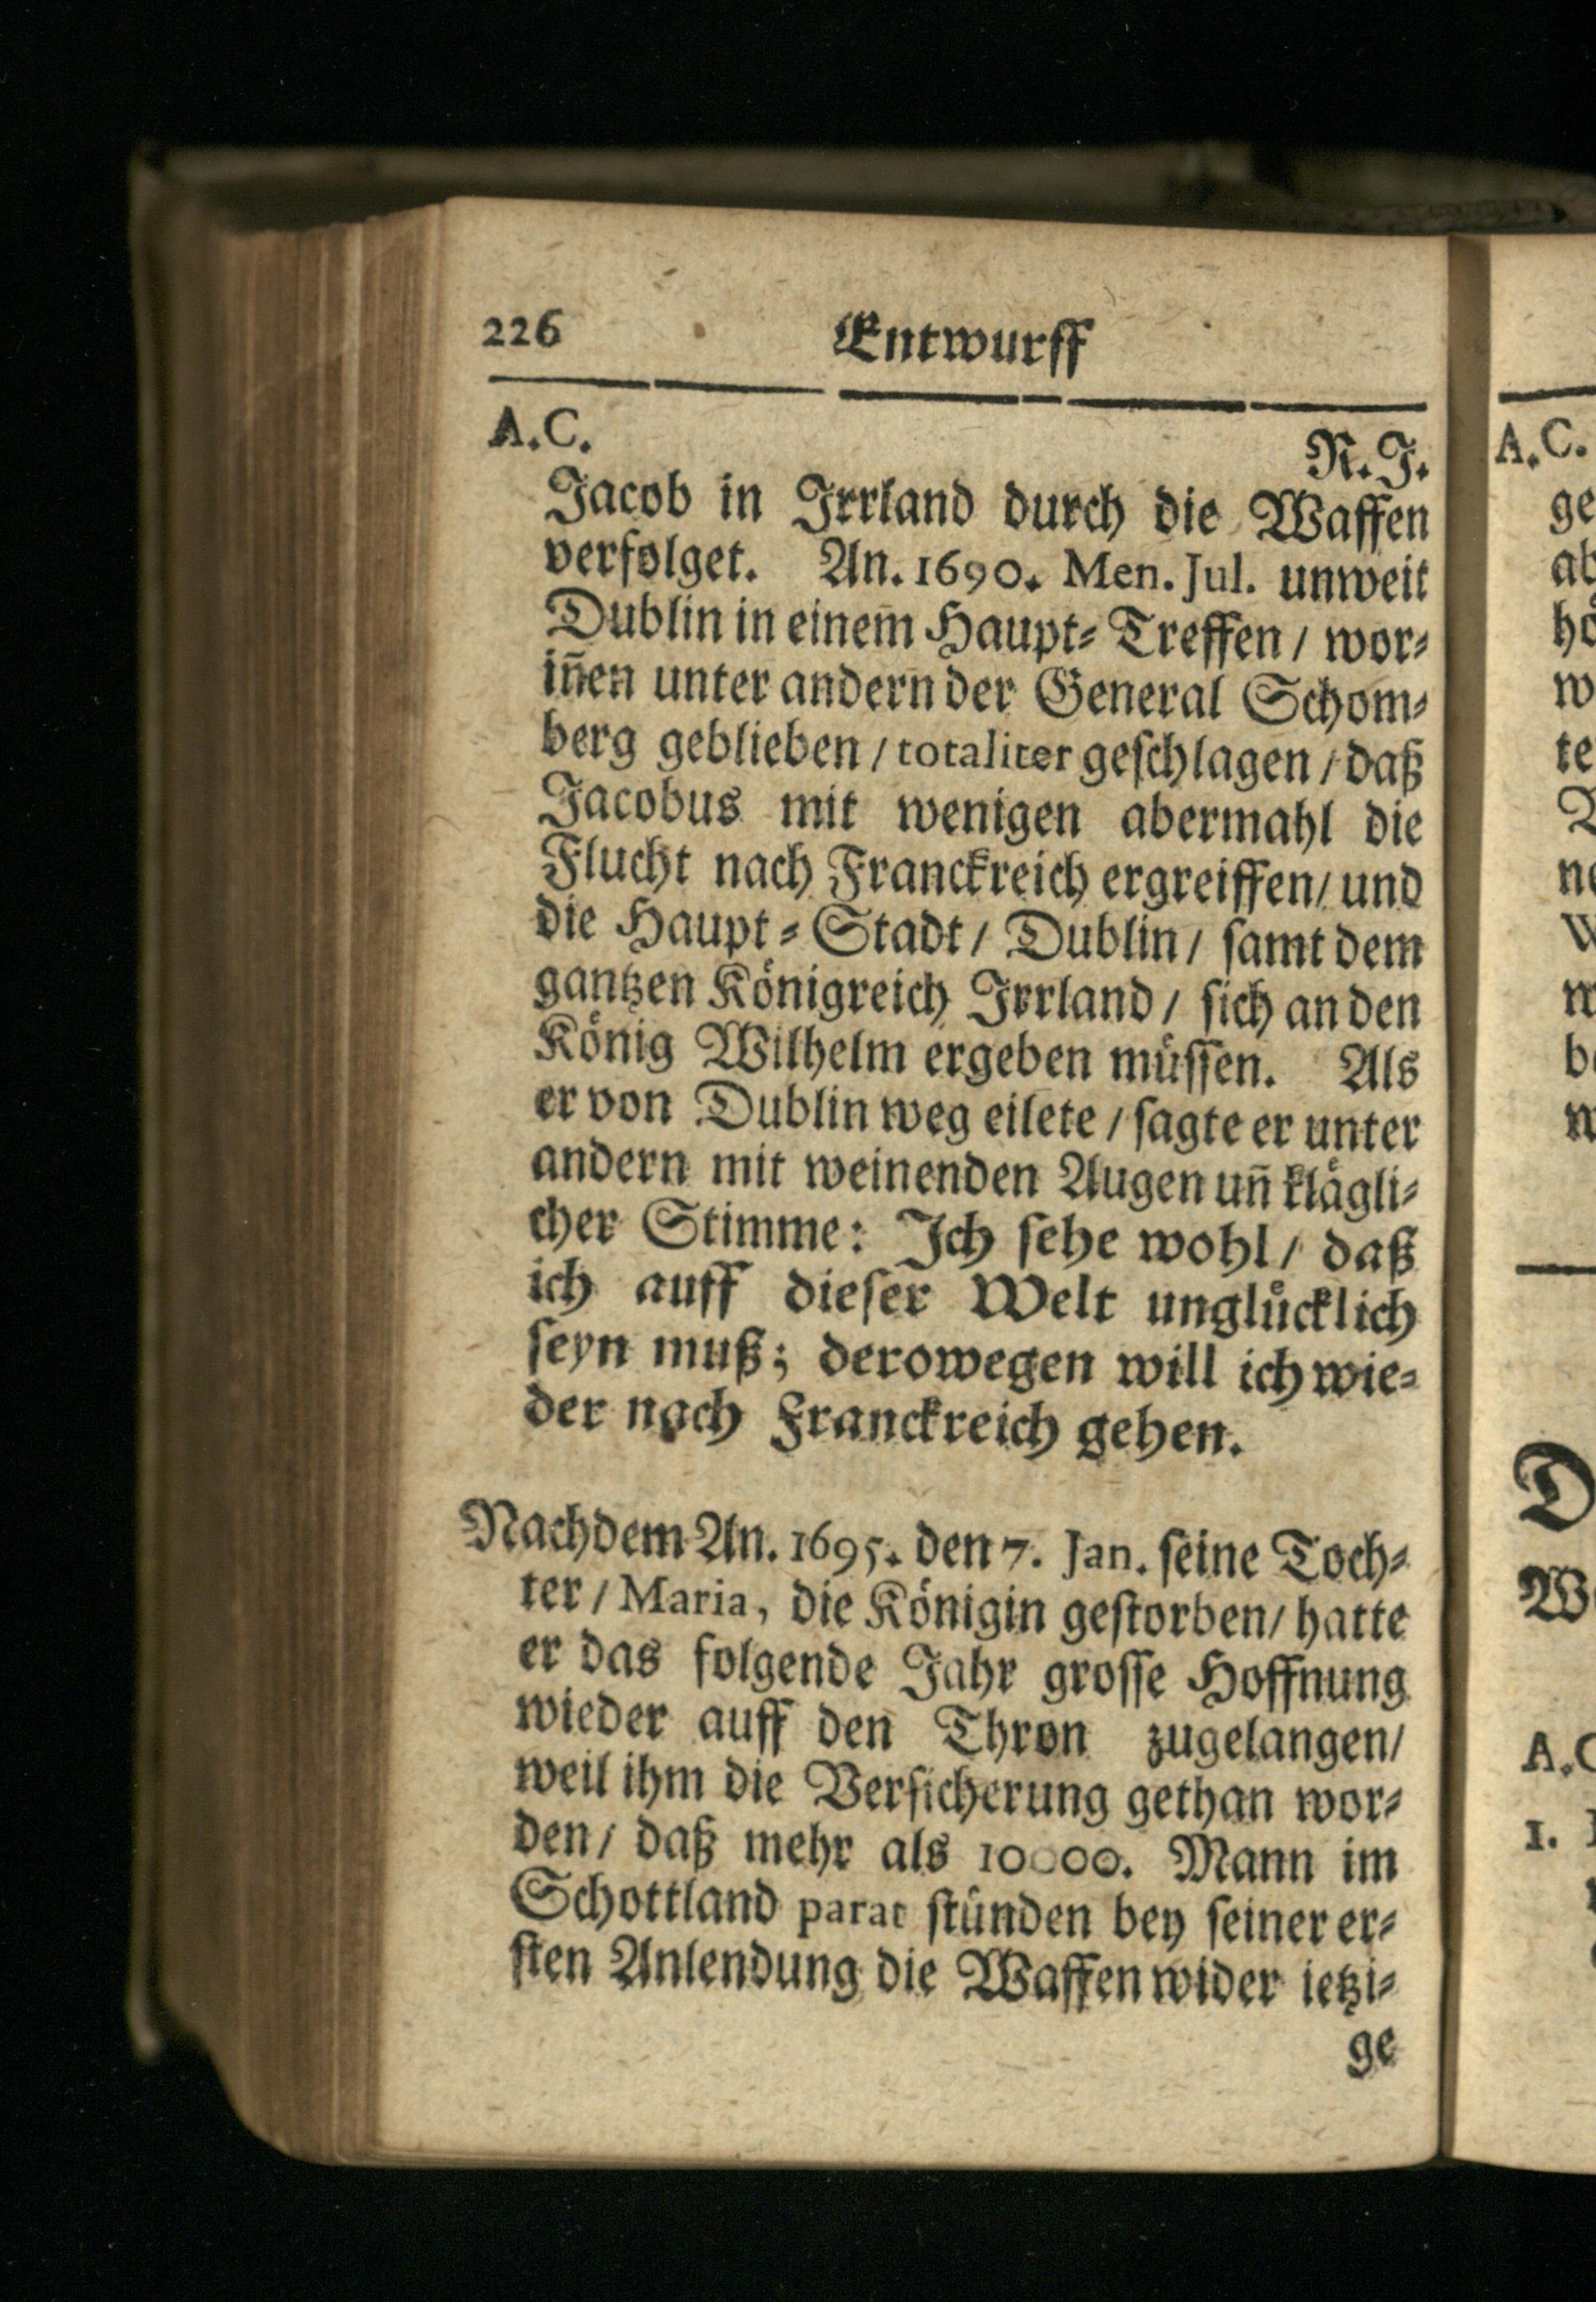 226 Entwurff
A.C. R.J.
Jacob in Irrland durch die Waffen
verfolget. An. 1690. Men. Jul. unweit
Dublin in einem̃ Haupt-Treffen / wor-
iñen unter andern der General Schom-
berg geblieben / totaliter geschlagen / daß
Jacobus mit wenigen abermahl die
Flucht nach Franckreich ergreiffen / und
die Haupt-Stadt / Dublin / samt dem
gantzen Königreich Irrland / sich an den
König Wilhelm ergeben müssen. Als
er von Dublin weg eilete / sagte er unter
andern mit weinenden Augen uñ klägli-
cher Stimme: Ich sehe wohl / daß
ich auff dieser Welt unglücklich
seyn muß; derowegen will ich wie-
der nach Franckreich gehen.
Nachdem An. 1695. den 7. Jan. seine Toch-
ter / Maria, die Königin gestorben / hatte
er das folgende Jahr grosse Hoffnung
wieder auff den Thron zugelangen /
weil ihm die Versicherung gethan wor-
den / daß mehr als 10000. Mann im
Schottland parat stünden bey seiner er-
sten Anlendung die Waffen wider ietzi-
ge
A.C.
ge